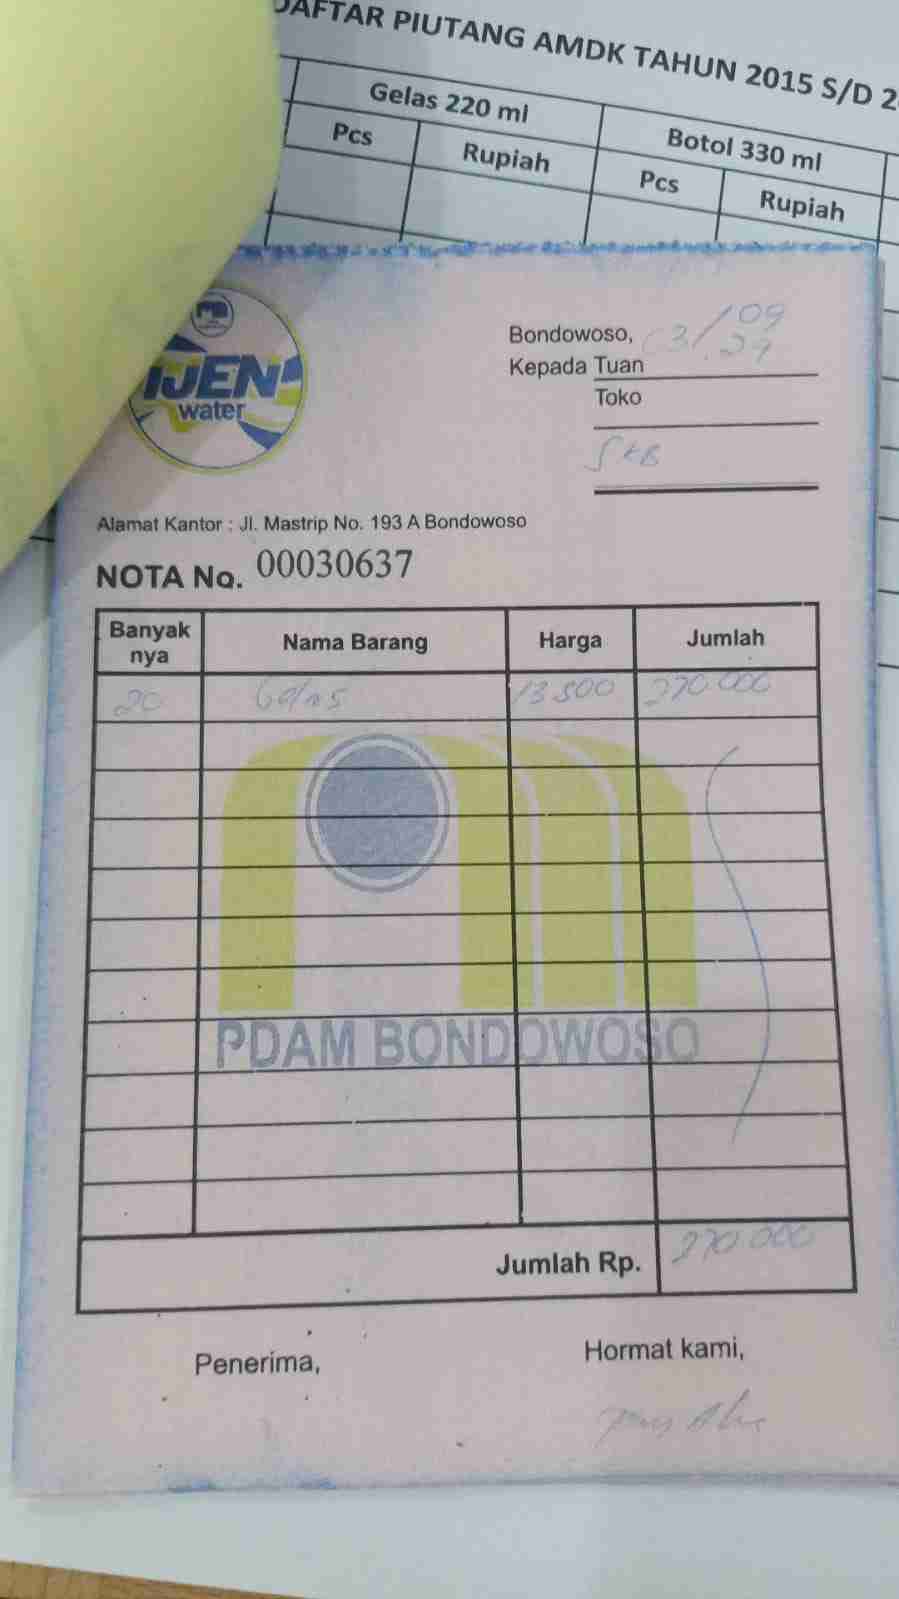 DAFTAR PIUTANG AMDK TAHUN 2015 S/D 2
Gelas 220 ml
Botol 330 ml
Pcs
Rupiah
Pcs
Rupiah
IJEN
water
Bondowoso, 3/09
Kepada Tuan
Toko
SKB
Alamat Kantor : Jl. Mastrip No. 193 A Bondowoso
NOTA No. 00030637
Banyak nya
Nama Barang
Harga
Jumlah
20
Gelas
13 500
270 000
PDAM BONDOWOSO
Jumlah Rp. 270 000
Penerima,
Hormat kami,